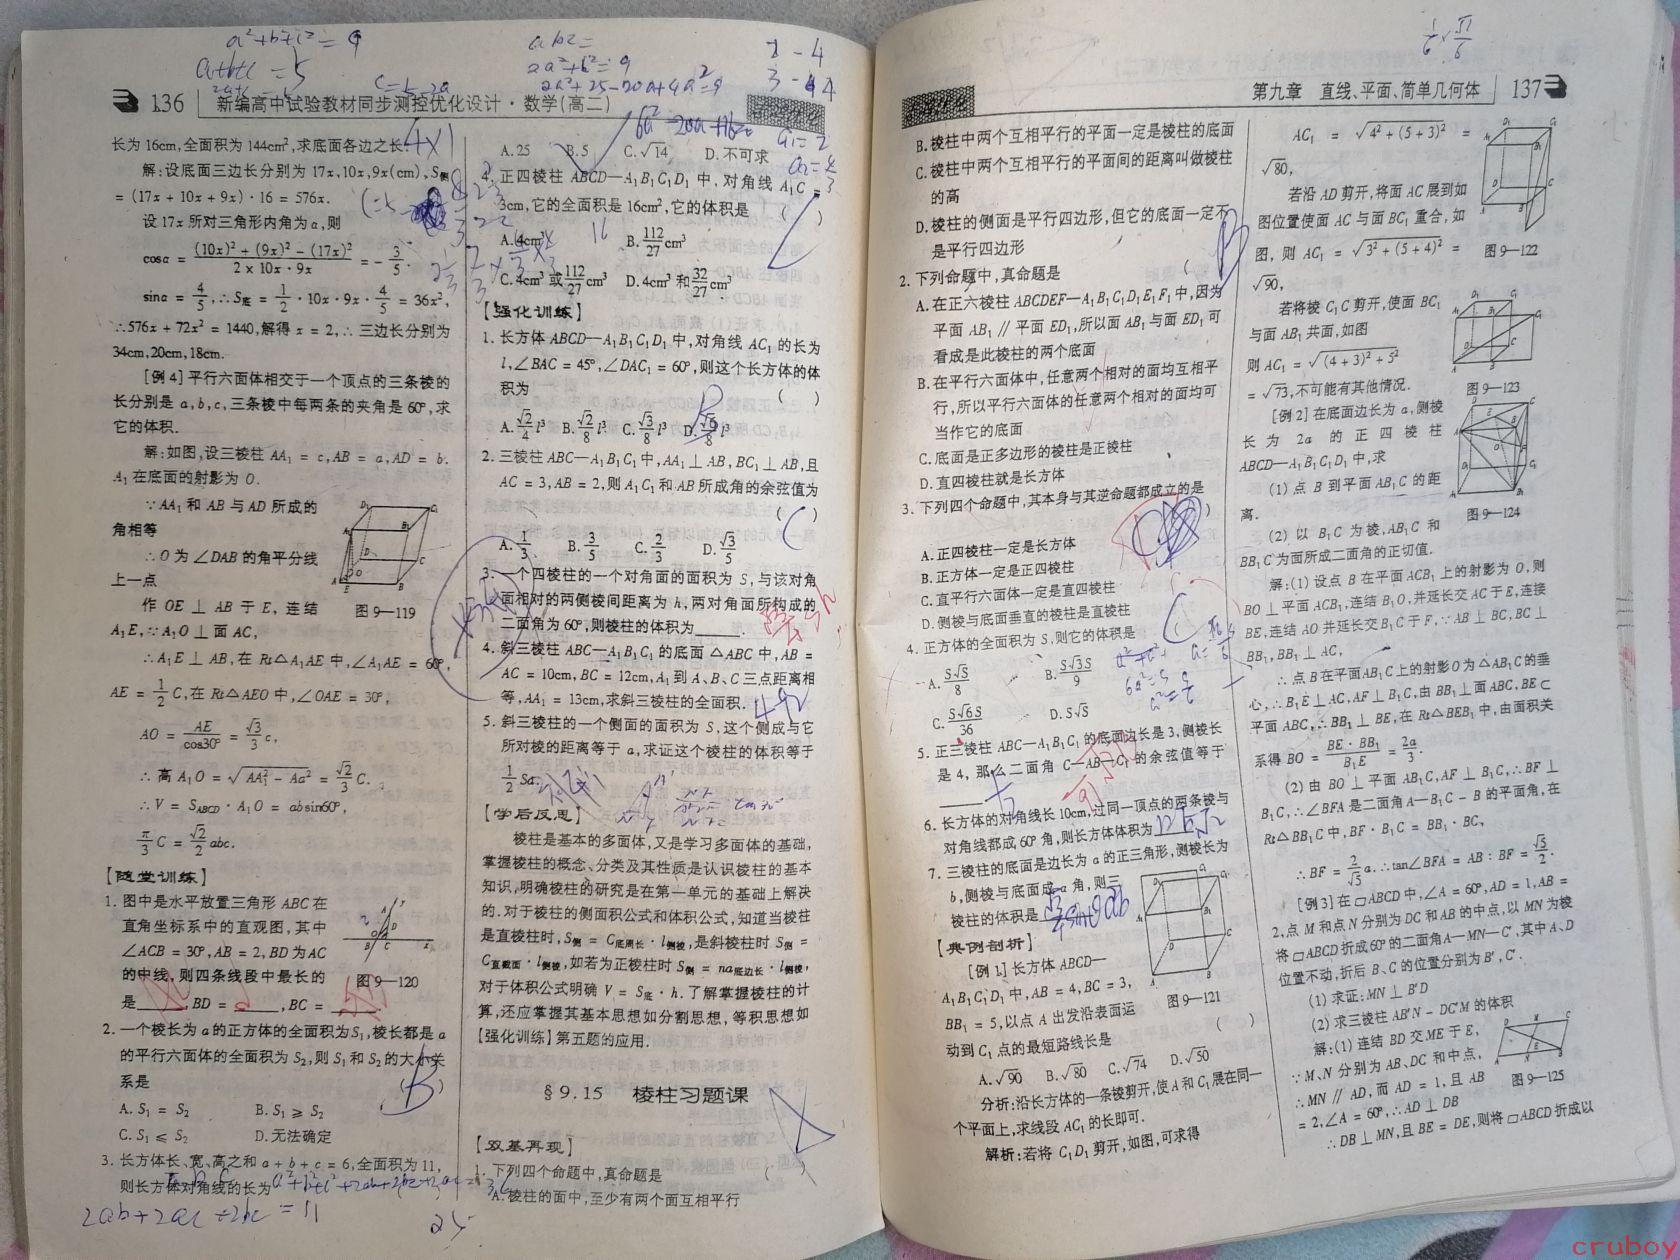 136 新编高中试验教材同步测控优化设计·数学(高二)
长为16cm,全面积为144cm²,求底面各边之长.
解:设底面三边长分别为17x,10x,9x(cm),S侧
=(17x+10x+9x)·16=576x.
设17x所对三角形内角为α,则
cosα=\frac{(10x)²+(9x)²-(17x)²}{2×10x·9x}=-\frac{3}{5}.
sinα=\frac{4}{5},∴S底=\frac{1}{2}·10x·9x·\frac{4}{5}=36x²,
∴576x+72x²=1440,解得x=2,∴三边长分别为
34cm,20cm,18cm.
[例4]平行六面体相交于一个顶点的三条棱的
长分别是a,b,c,三条棱中每两条的夹角是60°,求
它的体积.
解:如图,设三棱柱AA₁=c,AB=a,AD=b.
A₁在底面的射影为O.
∵AA₁和AB与AD所成的
角相等
∴O为∠DAB的角平分线
上一点
作OE⊥AB于E,连结
A₁E,∵A₁O⊥面AC,
图9—119
∴A₁E⊥AB,在Rt△A₁AE中,∠A₁AE=60°,
AE=\frac{1}{2}C,在Rt△AEO中,∠OAE=30°,
AO=\frac{AE}{cos30°}=\frac{√3}{3}c,
∴高A₁O=√(AA₁²-Aa²)=\frac{√2}{3}C.
∴V=S_{ABCD}·A₁O=absin60°,
\frac{π}{3}C=\frac{√2}{2}abc.
【随堂训练】
1.图中是水平放置三角形ABC在
直角坐标系中的直观图,其中
∠ACB=30°,AB=2,BD为AC
的中线,则四条线段中最长的
图9—120
是____,BD=____,BC=____.
2.一个棱长为a的正方体的全面积为S₁,棱长都是a
的平行六面体的全面积为S₂,则S₁和S₂的大小关
系是 ( )
B
A.S₁=S₂ B.S₁≥S₂
C.S₁≤S₂ D.无法确定
3.长方体长、宽、高之和a+b+c=6,全面积为11,
则长方体对角线的长为
2ab+2ac+2bc=11
25
A.25 B.5 C.√14 D.不可求
4.正四棱柱ABCD—A₁B₁C₁D₁中,对角线A₁C=
3cm,它的全面积是16cm²,它的体积是 ( )
A.4cm³ B.\frac{112}{27}cm³
C.4cm³或\frac{112}{27}cm³ D.4cm³和\frac{32}{27}cm³
【强化训练】
1.长方体ABCD—A₁B₁C₁D₁中,对角线AC₁的长为
l,∠BAC=45°,∠DAC₁=60°,则这个长方体的体
积为 ( )
A.\frac{√2}{4}l³ B.\frac{√2}{8}l³ C.\frac{√3}{8}l³ D.\frac{√6}{8}l³
2.三棱柱ABC—A₁B₁C₁中,AA₁⊥AB,BC₁⊥AB,且
AC=3,AB=2,则A₁C₁和AB所成角的余弦值为
( )
A.\frac{1}{3} B.\frac{3}{5} C.\frac{2}{3} D.\frac{√3}{5}
3.一个四棱柱的一个对角面的面积为S,与该对角
面相对的两侧棱间距离为h,两对角面所构成的
二面角为60°,则棱柱的体积为____.
4.斜三棱柱ABC—A₁B₁C₁的底面△ABC中,AB=
AC=10cm,BC=12cm,A₁到A、B、C三点距离相
等,AA₁=13cm,求斜三棱柱的全面积.
5.斜三棱柱的一个侧面的面积为S,这个侧成与它
所对棱的距离等于a,求证这个棱柱的体积等于
\frac{1}{2}Sa.
【学后反思】
棱柱是基本的多面体,又是学习多面体的基础,
掌握棱柱的概念、分类及其性质是认识棱柱的基本
知识,明确棱柱的研究是在第一单元的基础上解决
的.对于棱柱的侧面积公式和体积公式,知道当棱柱
是直棱柱时,S侧=C底周长·l侧棱,是斜棱柱时S侧=
C直截面·l侧棱,如若为正棱柱时S侧=na底边长·l侧棱,
对于体积公式明确V=S底·h.了解掌握棱柱的计
算,还应掌握其基本思想如分割思想,等积思想如
[强化训练]第五题的应用.
§9.15 棱柱习题课
【双基再现】
1.下列四个命题中,真命题是 ( )
A.棱柱的面中,至少有两个面互相平行
第九章 直线、平面、简单几何体 137
B.棱柱中两个互相平行的平面一定是棱柱的底面
C.棱柱中两个互相平行的平面间的距离叫做棱柱
的高
D.棱柱的侧面是平行四边形,但它的底面一定不
是平行四边形
2.下列命题中,真命题是 ( )
A.在正六棱柱ABCDEF—A₁B₁C₁D₁E₁F₁中,因为
平面AB₁∥平面ED₁,所以面AB₁与面ED₁可
看成是此棱柱的两个底面
B.在平行六面体中,任意两个相对的面均互相平
行,所以平行六面体的任意两个相对的面均可
当作它的底面
C.底面是正多边形的棱柱是正棱柱
D.直四棱柱就是长方体
3.下列四个命题中,其本身与其逆命题都成立的是
( )
A.正四棱柱一定是长方体
B.正方体一定是正四棱柱
C.直平行六面体一定是直四棱柱
D.侧棱与底面垂直的棱柱是直棱柱
4.正方体的全面积为S,则它的体积是
A.\frac{S√S}{8} B.\frac{S√3S}{9}
C.\frac{S√6S}{36} D.S√S
5.正三棱柱ABC—A₁B₁C₁的底面边长是3,侧棱长
是4,那么二面角C—AB—C₁的余弦值等于
____.
6.长方体的对角线长10cm,过同一顶点的两条棱与
对角线都成60°角,则长方体体积为____.
7.三棱柱的底面是边长为a的正三角形,侧棱长为
b,侧棱与底面成α角,则三
棱柱的体积是____.
【典例剖析】
[例1]长方体ABCD—
A₁B₁C₁D₁中,AB=4,BC=3,
BB₁=5,以点A出发沿表面运
图9—121
动到C₁点的最短路线长是 ( )
A.√90 B.√80 C.√74 D.√50
分析:沿长方体的一条棱剪开,使A和C₁展在同一
个平面上,求线段AC₁的长即可.
解析:若将C₁D₁剪开,如图,可求得
AC₁=√(4²+(5+3)²)=
√80,
若沿AD剪开,将面AC展到如
图位置使面AC与面BC₁重合,如
图,则AC₁=√(3²+(5+4)²)=
图9—122
√90,
若将棱C₁C剪开,使面BC₁
与面AB₁共面,如图
则AC₁=√((4+3)²+5²)
=√73,不可能有其他情况.
图9—123
[例2]在底面边长为a,侧棱
长为2a的正四棱柱
ABCD—A₁B₁C₁D₁中,求
(1)点B到平面AB₁C的距
离.
图9—124
(2)以B₁C为棱,AB₁C和
BB₁C为面所成二面角的正切值.
解:(1)设点B在平面ACB₁上的射影为O,则
BO⊥平面ACB₁,连结B₁O,并延长交AC于E,连接
BE,连结AO并延长交B₁C于F,∵AB⊥BC,BC⊥
BB₁,BB₁⊥AC,
∴点B在平面AB₁C上的射影O为△AB₁C的垂
心,∴B₁E⊥AC,AF⊥B₁C,由BB₁⊥面ABC,BE⊂
平面ABC,∴BB₁⊥BE,在Rt△BEB₁中,由面积关
系得BO=\frac{BE·BB₁}{B₁E}=\frac{2a}{3}.
(2)由BO⊥平面AB₁C,AF⊥B₁C,∴BF⊥
B₁C,∴∠BFA是二面角A—B₁C-B的平面角,在
Rt△BB₁C中,BF·B₁C=BB₁·BC,
∴BF=\frac{2}{√5}a.∴tan∠BFA=AB:BF=\frac{√5}{2}.
[例3]在▱ABCD中,∠A=60°,AD=1,AB=
2,点M和点N分别为DC和AB的中点,以MN为棱
将▱ABCD折成60°的二面角A—MN—C′,其中A、D
位置不动,折后B、C的位置分别为B′,C′.
(1)求证:MN⊥B′D
(2)求三棱柱AB′N-DC′M的体积
解:(1)连结BD交ME于E,
∵M、N分别为AB、DC和中点,
∴MN∥AD,而AD=1,且AB
图9—125
=2,∠A=60°,∴AD⊥DB
∴DB⊥MN,且BE=DE,则将▱ABCD折成以
cruboy